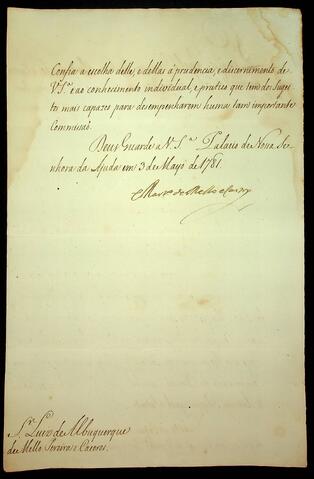 Confia a escolha delle, e dellas á prudencia, e discernimento de
V. S.ª e ao conhecimento individual, e pratico que tem dos Sugei
tos mais capazes para desempenharem huma tam importante
Commissaõ.
Deus Guarde a V. S.ª Palacio de Nossa Se-
nhora da Ajuda em 3 de Mayo de 1781.
Mart.º de Mello e Castro
S.r Luiz de Albuquerque
de Mello Pereira e Caceres.